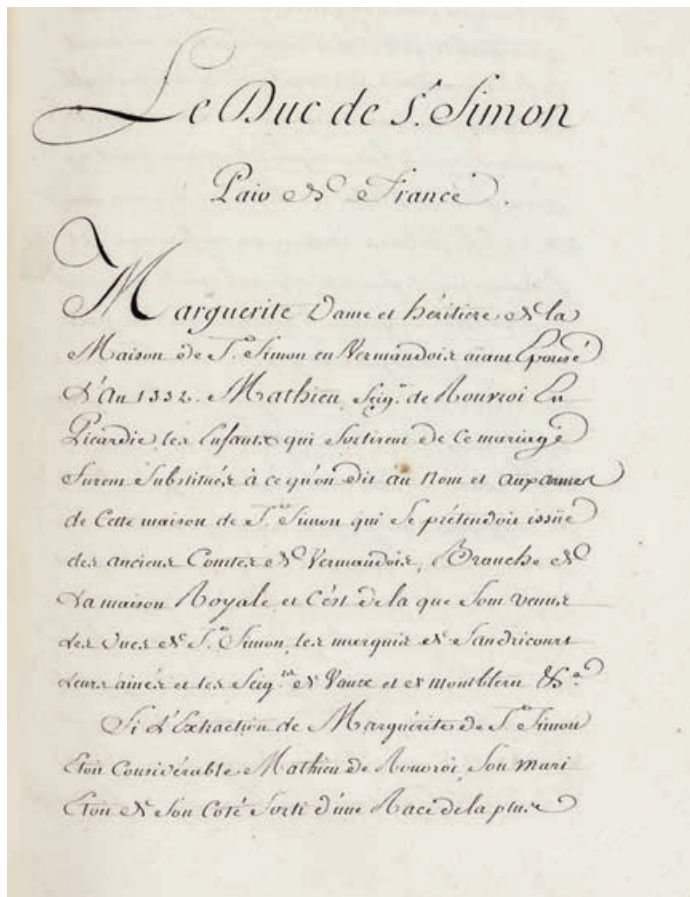 Le Duc de S.ᵗ Simon
Pair de France.
Marguerite Dame et héritiere de la
Maison de S.ᵗ Simon en Vermandois aiant Epousé
L'An 1332. Mathieu Seig.ʳ de Rouvroi En
Picardie, les Enfants qui Sortirent de Ce mariage
furent Substitués à ce qu'on dit au Nom et aux armes
de Cette maison de S.ᵗ Simon qui Se prétendoit issüe
des anciens Comtes de Vermandois, Branche de
La maison Royale, et C'est de la que Sont venus
Les Ducs de S.ᵗ Simon, les marquis de Sandricourt
Leurs ainés et les Seig.ʳˢ de Vaux et de montbleru &c.ª
Si L'Extraction de Marguérite de S.ᵗ Simon
Etoit Considérable Mathieu de Rouvroi, Son mari
Etoit de Son Coté Sorti d'une Race de la plus